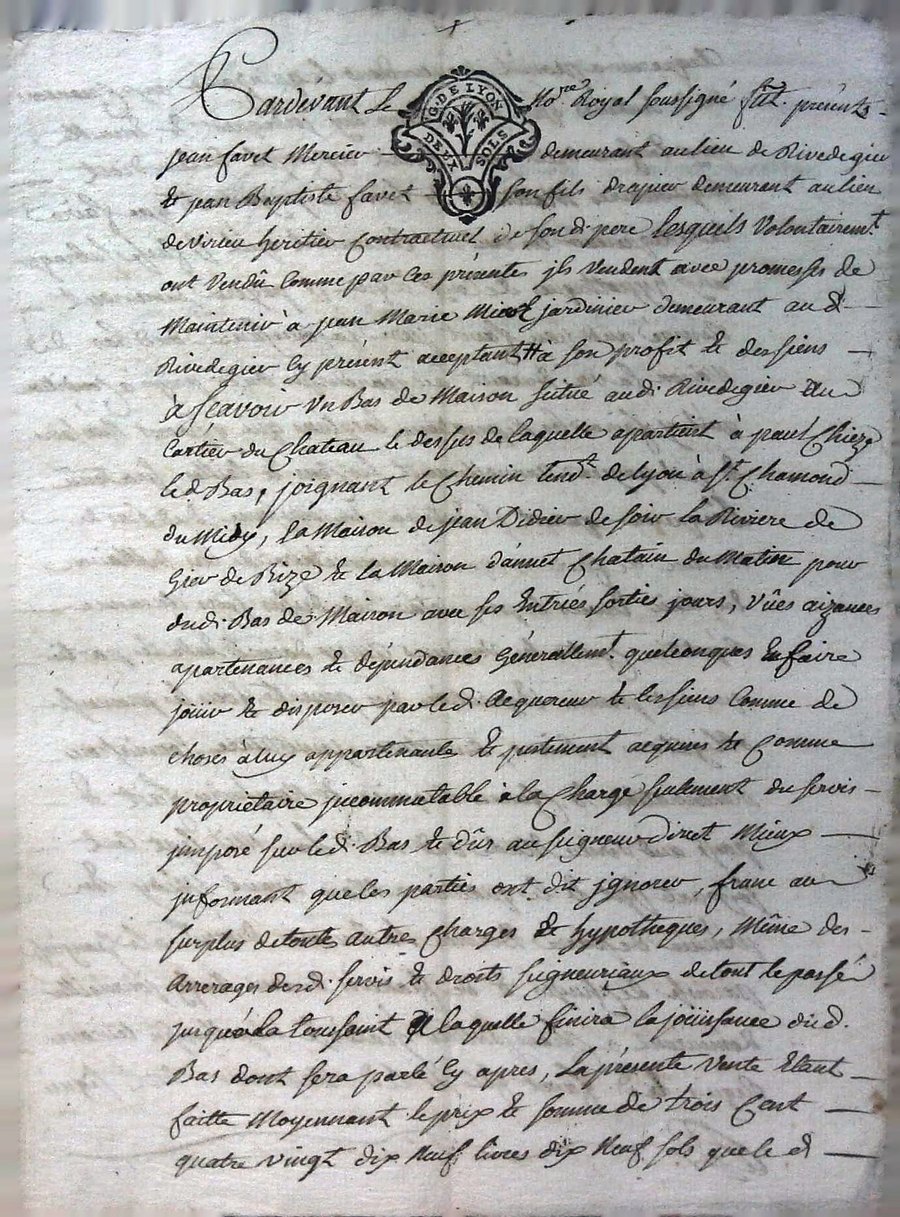 Pardevant Le No.re Royal soussigné fût. présents
G. DE LYON
DEUX SOLS
jean favet Mercier demeurant au lieu de Rivedegier
& jean Baptiste favet son fils drapier demeurant au lieu
de Virieu heritier Contractuel de son di pere lesquels Volontairemt.
ont Vendû Comme par Ces présentes jls Vendent avec promesses de
Maintenir à jean Marie jardinier demeurant au d
Rivedegier Cy présent acceptant à son profit & des siens
à Sçavoir Un Bas de Maison situé audi Rivedegier au
Cartier du Chateau le dessus de laquelle apartient à paul Chieze
led Bas, joignant le Chemin tendt. de Lyon à St. Chamond
du Midy, La Maison de jean Didier de soir la Riviere de
Gier de Bize & la Maison d'annet Chatain du Matin pour
dudi. Bas de Maison avec ses Entriés sorties jours, Vûes aizances
apartenances & dépendances Générallemt. quelconques En faire
joüir & disposer par ledi. acquereur & les siens Comme de
choses à luy appartenante & justement acquises & Comme
propriétaire jncommutable à la Charge seulement du servis
jmposé sur ledi. Bas & dûs au seigneur direct Mieux
jnformant que les parties ont dit jgnorer, franc au
surplus de toute autres Charges & hypotheques, Même des
arrerages desdi. servis & droits seigneuriaux de tout le passé
jusqu'à la toussaint laquelle finira la joüissance dud.
Bas dont sera parlé Cy apres, La présente Vente Etant
faitte Moyennant le prix & somme de trois Cent
quatre Vingt dix Neuf livres dix Neuf sols que le d